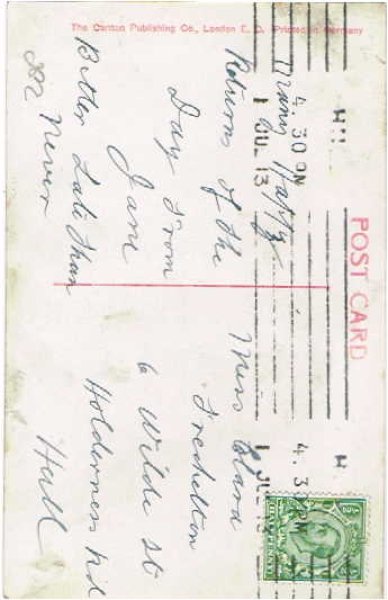 The Canton Publishing Co., London E. C. Printed in Germany
POST CARD
Many Happy
Returns of the
Day from
Jane
Better Late than
Never
Miss Clara
6 Wilde St
Holderness Rd
Hull
4. 30 PM
1 JUL 13
4. 30 PM
1 JUL 13
HALFPENNY